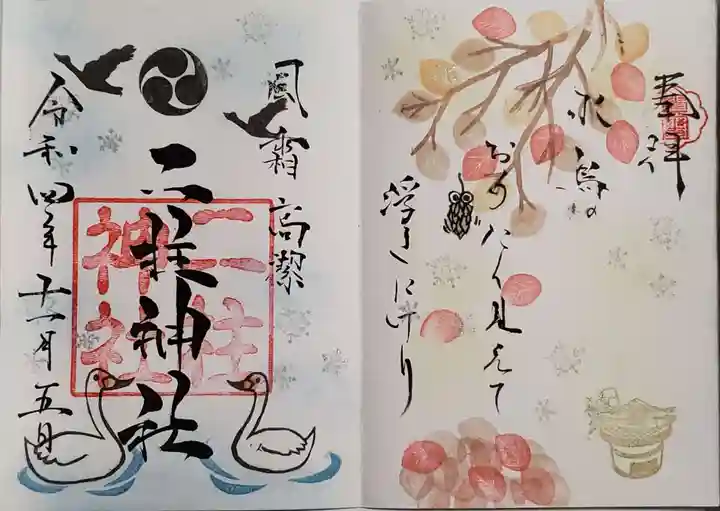 奉拝
水鳥の
おもたく見えて
浮きにけり
風霜高潔
二柱神社
二柱
神社
令和四年十一月五日